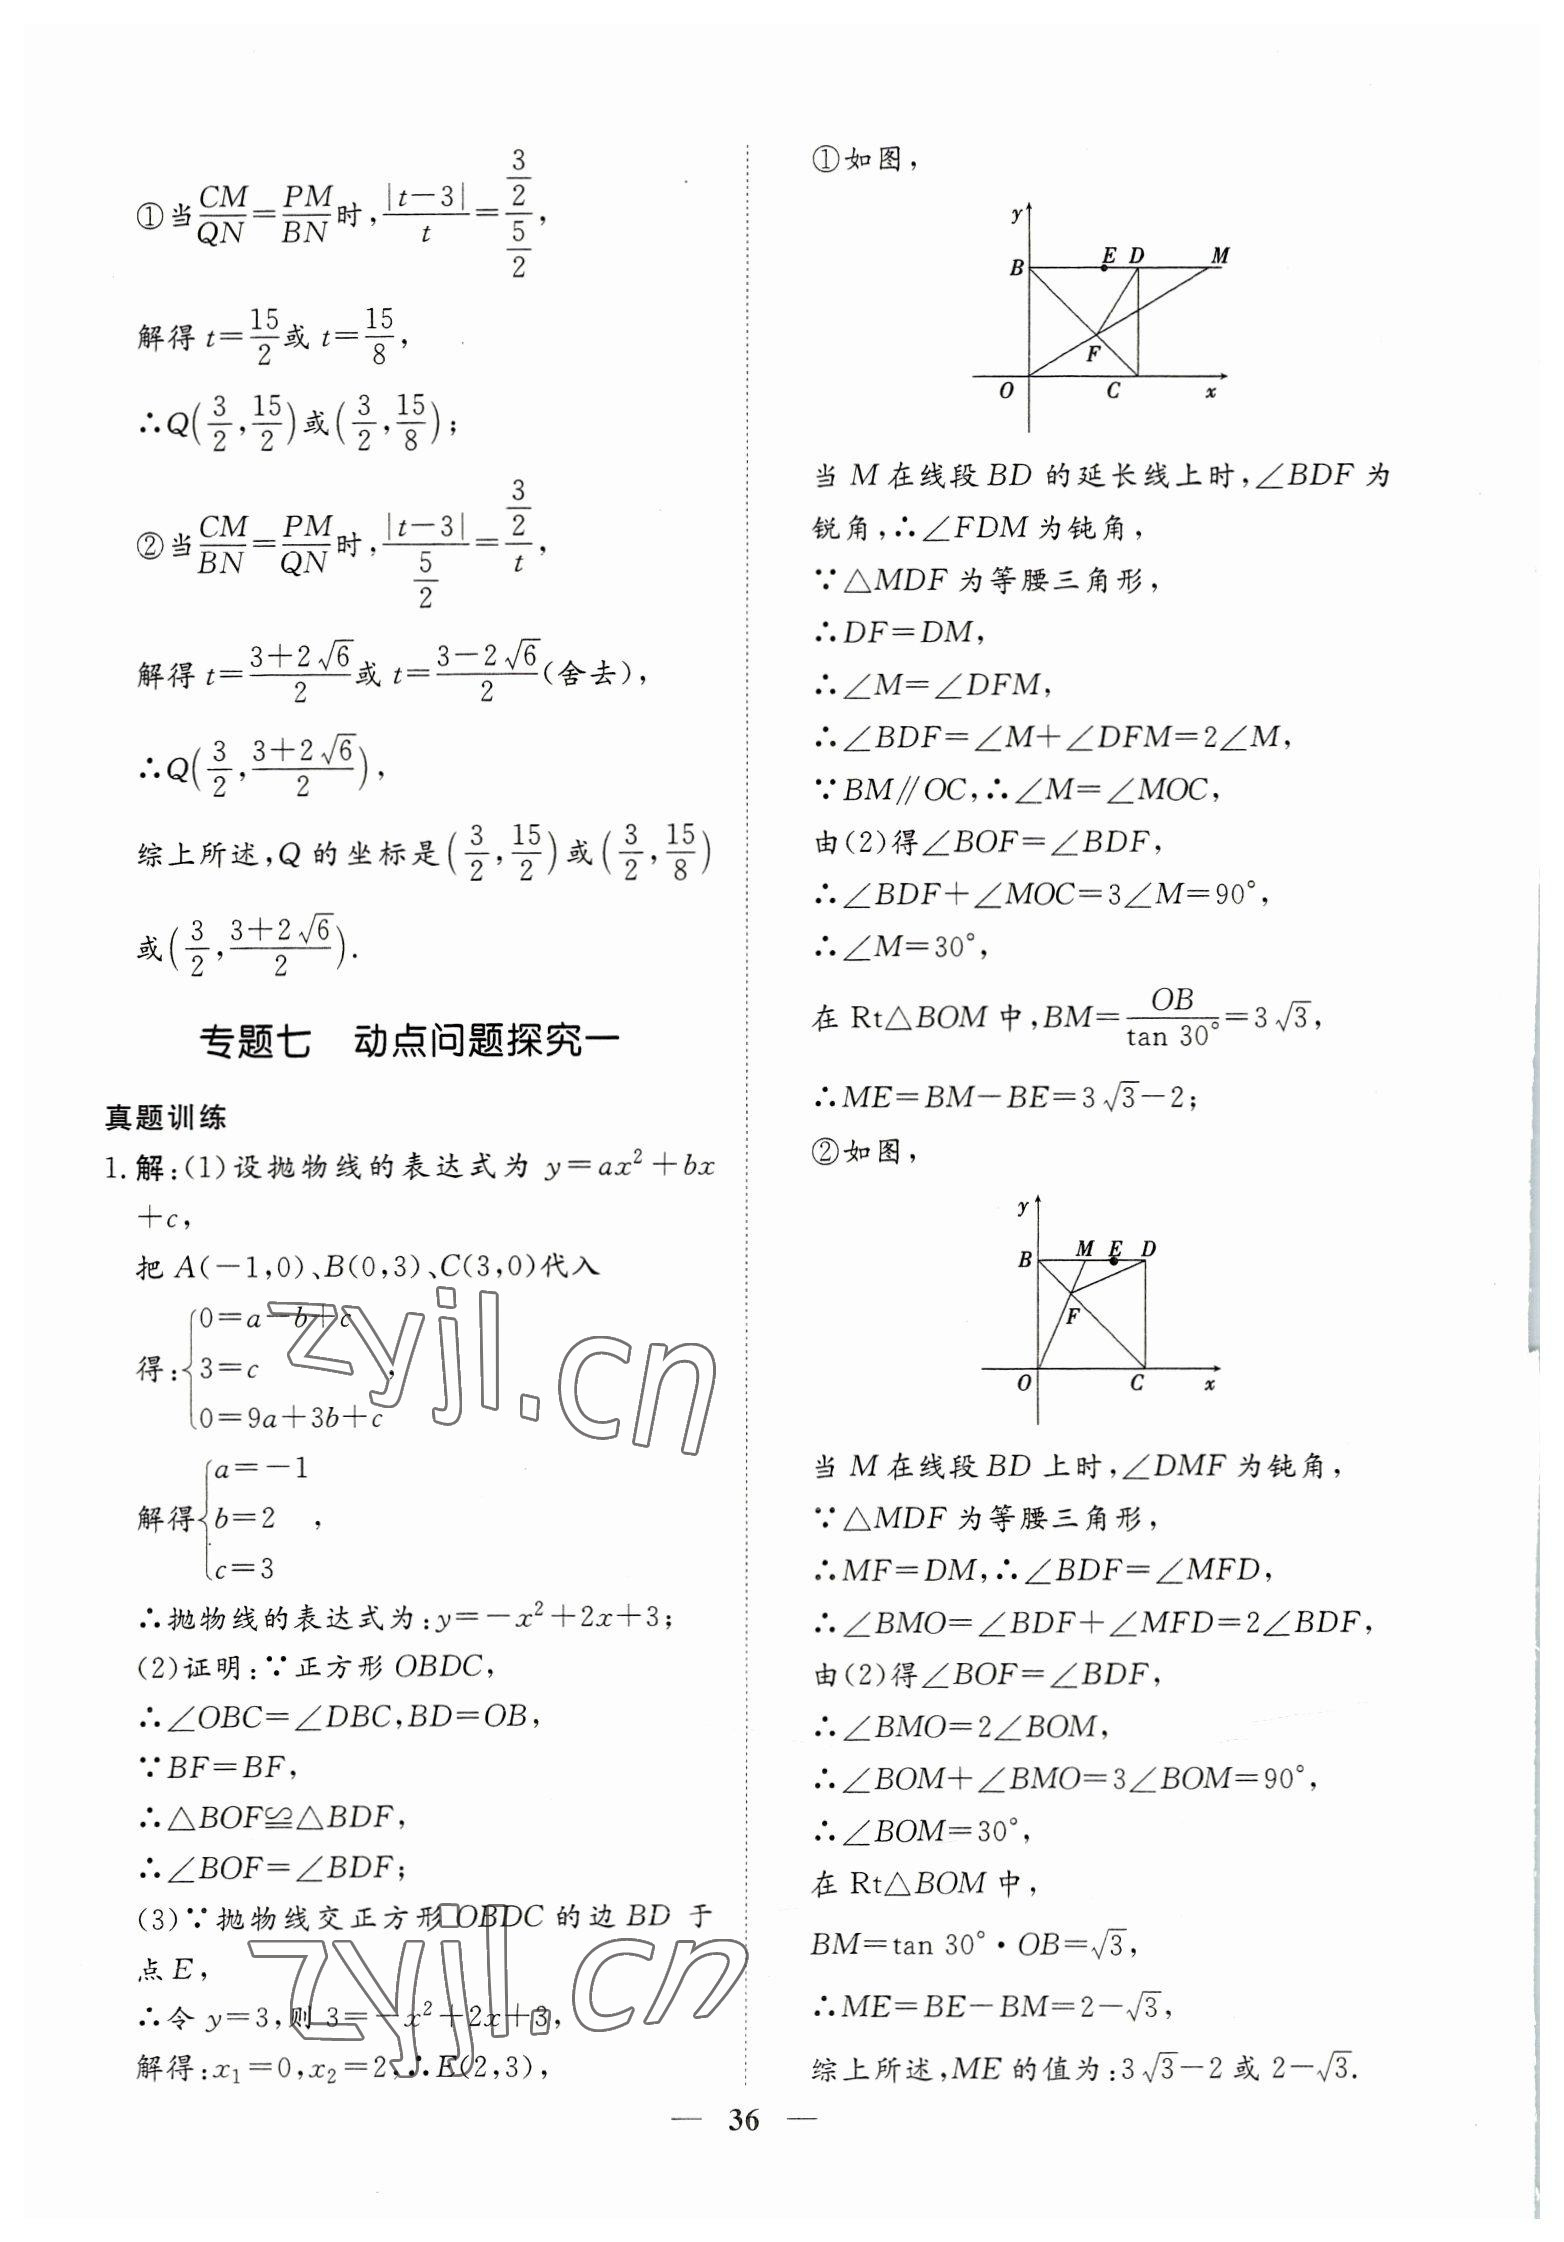 ①当CM/QN=PM/BN时,|t-3|/t=(3/2)/(5/2),
解得 t=15/2或 t=15/8,
∴Q(3/2,15/2)或(3/2,15/8);
②当CM/BN=PM/QN时,|t-3|/(5/2)=(3/2)/t,
解得 t=(3+2√6)/2或 t=(3-2√6)/2(舍去),
∴Q(3/2,(3+2√6)/2),
综上所述,Q 的坐标是(3/2,15/2)或(3/2,15/8)
或(3/2,(3+2√6)/2).
专题七 动点问题探究一
真题训练
1.解:(1)设抛物线的表达式为 y=ax²+bx
+c,
把 A(-1,0)、B(0,3)、C(3,0)代入
0=a-b+c
得:{3=c,
0=9a+3b+c
a=-1
解得{b=2,
c=3
∴抛物线的表达式为:y=-x²+2x+3;
(2)证明:∵正方形 OBDC,
∴∠OBC=∠DBC,BD=OB,
∵BF=BF,
∴△BOF≌△BDF,
∴∠BOF=∠BDF;
(3)∵抛物线交正方形 OBDC 的边 BD 于
点 E,
∴令 y=3,则 3=-x²+2x+3,
解得:x₁=0,x₂=2,∴E(2,3),
①如图,
y
B E D M
F
O C x
当 M 在线段 BD 的延长线上时,∠BDF 为
锐角,∴∠FDM 为钝角,
∵△MDF 为等腰三角形,
∴DF=DM,
∴∠M=∠DFM,
∴∠BDF=∠M+∠DFM=2∠M,
∵BM∥OC,∴∠M=∠MOC,
由(2)得∠BOF=∠BDF,
∴∠BDF+∠MOC=3∠M=90°,
∴∠M=30°,
在 Rt△BOM 中,BM=OB/tan 30°=3√3,
∴ME=BM-BE=3√3-2;
②如图,
y
B M E D
F
O C x
当 M 在线段 BD 上时,∠DMF 为钝角,
∵△MDF 为等腰三角形,
∴MF=DM,∴∠BDF=∠MFD,
∴∠BMO=∠BDF+∠MFD=2∠BDF,
由(2)得∠BOF=∠BDF,
∴∠BMO=2∠BOM,
∴∠BOM+∠BMO=3∠BOM=90°,
∴∠BOM=30°,
在 Rt△BOM 中,
BM=tan 30°·OB=√3,
∴ME=BE-BM=2-√3,
综上所述,ME 的值为:3√3-2 或 2-√3.
— 36 —
zyjl.cn
zyjl.cn